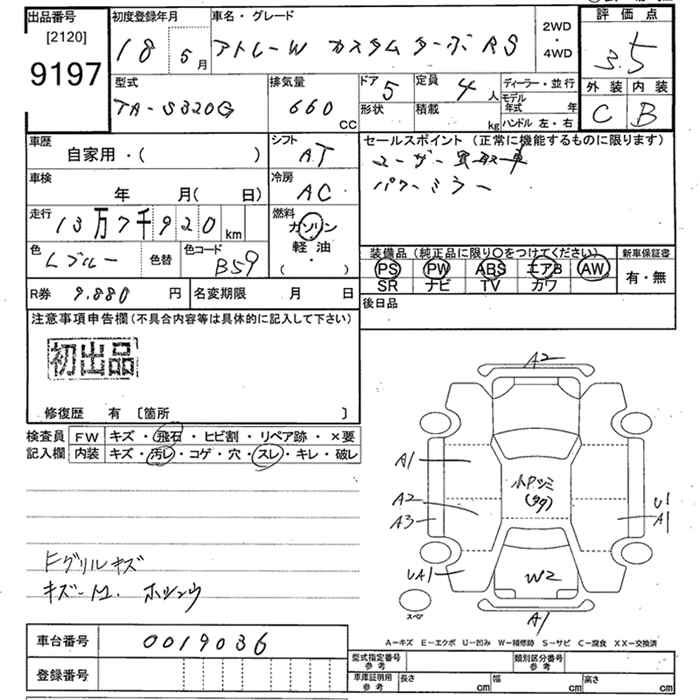 出品番号 初度登録年月 車名・グレード 2WD・4WD 評価点
[2120]
9197 18 5月 アトレーW カスタムターボRS 3.5
型式 排気量 ドア 5 定員 4人 ディーラー・並行 外装 内装
TA-S320G 660CC 形状 積載 kg モデル年式 年 C B
ハンドル 左・右
車歴 シフト セールスポイント(正常に機能するものに限ります)
自家用・( ) AT ユーザー買取車
車検 冷房 パワーミラー
年 月( 日) AC
走行 燃料
13万7千920km ガソリン
軽油
・
( )
色 Lブルー 色替 色コード B59
装備品(純正品に限り○をつけてください) 新車保証書
PS PW ABS エアB AW 有・無
SR ナビ TV カワ
R券 9.880円 名変期限 月 日 後日品
注意事項申告欄(不具合内容等は具体的に記入して下さい)
初出品
修復歴 有 [箇所 ]
検査員 FW キズ・飛石・ヒビ割・リペア跡・×要
記入欄 内装 キズ・汚レ・コゲ・穴・スレ・キレ・破レ
A2
A1
A2
A3
UA1
小Pツミ
(タタ)
U1
A1
W2
A1
スペア
Fグリルキズ
キズ-M. ホソウ
A-キズ E-エクボ U-凹み W-補修跡 S-サビ C-腐食 XX-交換済
車台番号 0019036
登録番号
型式指定番号 参考 類別区分番号 参考
車庫証明用 参考 長さ cm 幅 cm 高さ cm